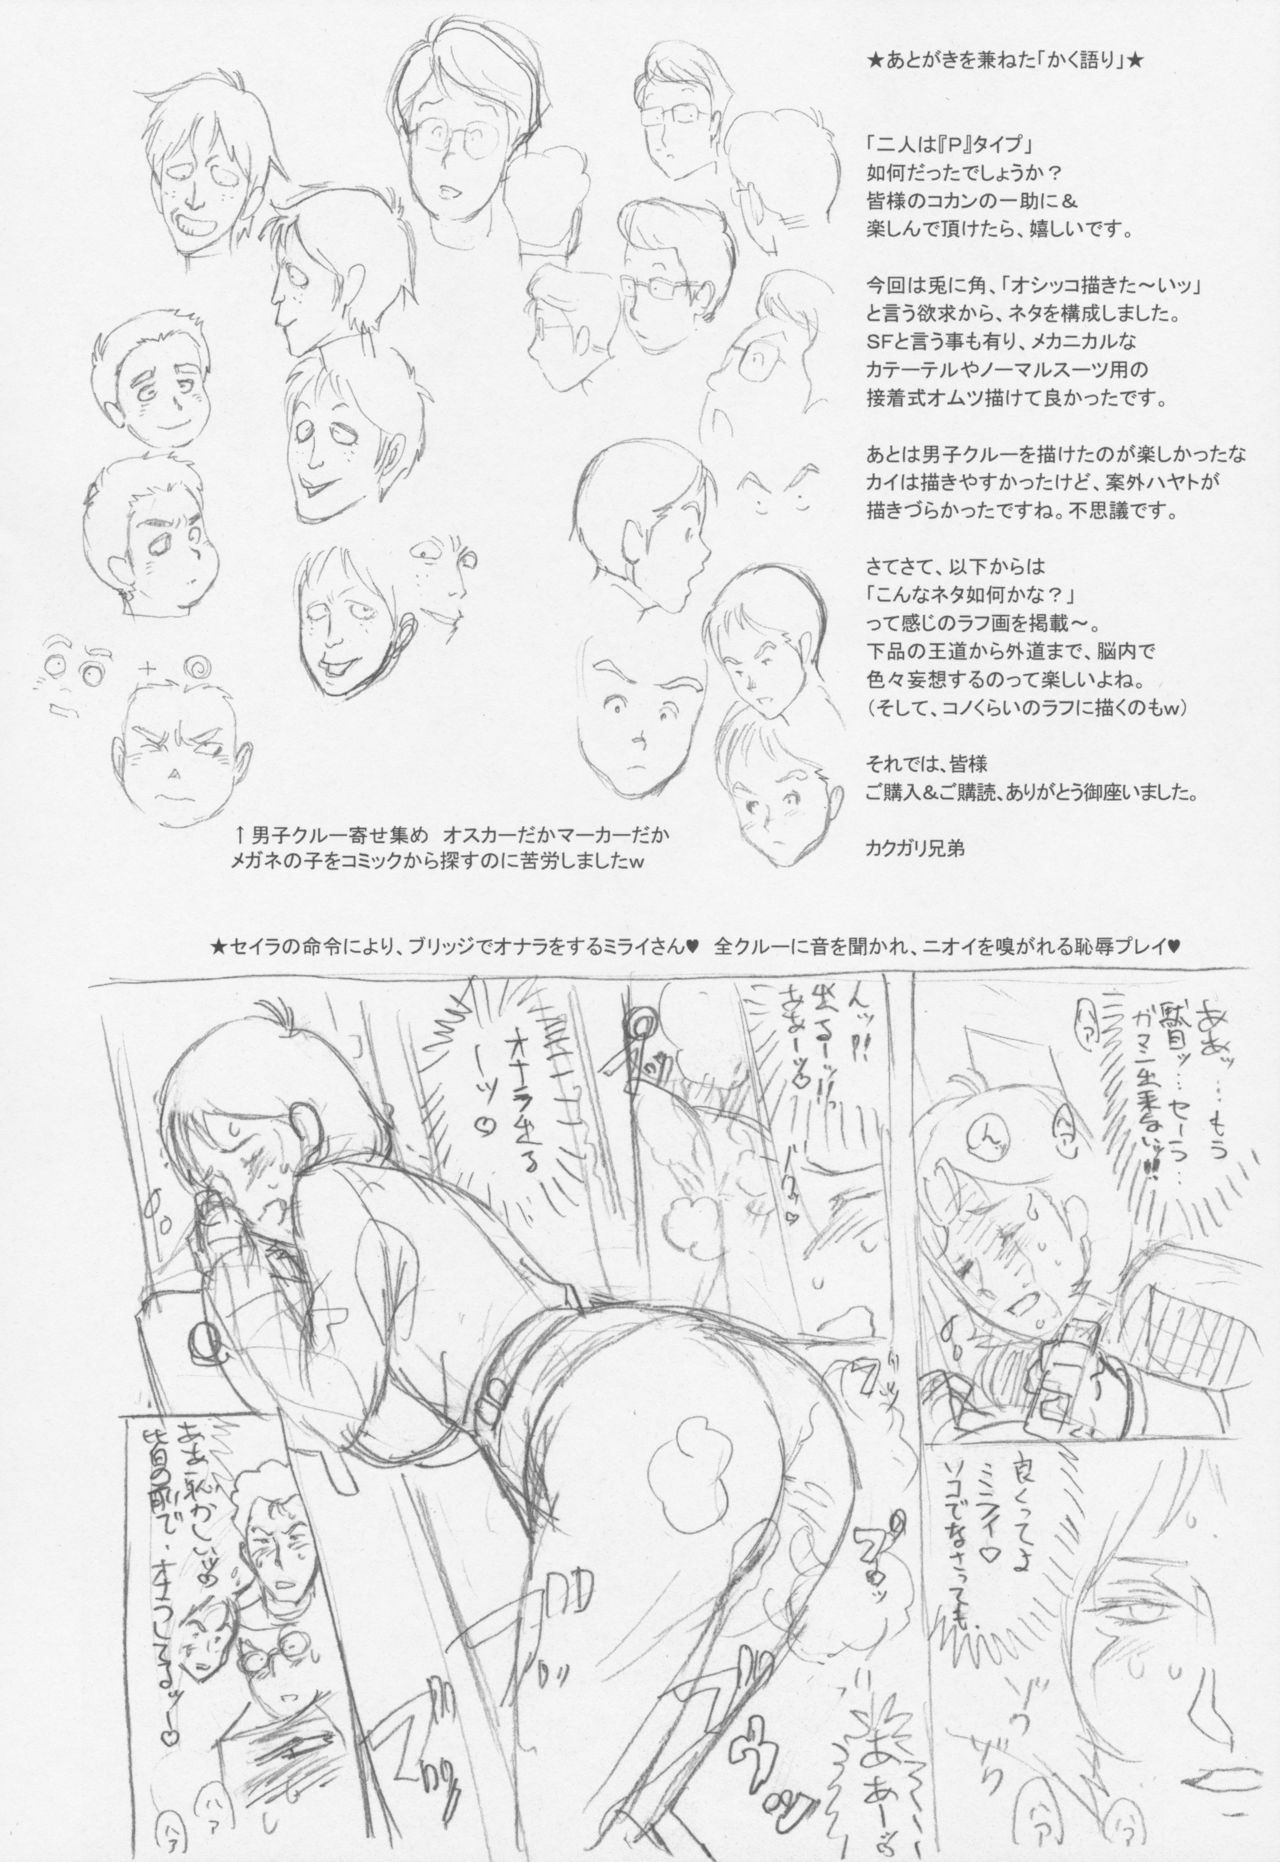 ★あとがきを兼ねた「かく語り」★
「二人は『P』タイプ」
如何だったでしょうか？
皆様のコカンの一助に＆
楽しんで頂けたら、嬉しいです。
今回は兎に角、「オシッコ描きた～いッ」
と言う欲求から、ネタを構成しました。
SFと言う事も有り、メカニカルな
カテーテルやノーマルスーツ用の
接着式オムツ描けて良かったです。
あとは男子クルーを描けたのが楽しかったな
カイは描きやすかったけど、案外ハヤトが
描きづらかったですね。不思議です。
さてさて、以下からは
「こんなネタ如何かな？」
って感じのラフ画を掲載～。
下品の王道から外道まで、脳内で
色々妄想するのって楽しいよね。
（そして、コノくらいのラフに描くのもw）
それでは、皆様
ご購入＆ご購読、ありがとう御座いました。
カクガリ兄弟
↑男子クルー寄せ集め　オスカーだかマーカーだか
メガネの子をコミックから探すのに苦労しましたw
★セイラの命令により、ブリッジでオナラをするミライさん♥　全クルーに音を聞かれ、ニオイを嗅がれる恥辱プレイ♥
ああッ…もう
駄目ッ…セーラ…
ガマン出来ないッ!!
ハァ
ん
ハァ
良くってよ
ミライ♡
ソコでなさっても
ゾク
ゾク
ハァ
ハァ
んッ!!
出るーッ!!
ああーッ♡
オナラ出る
ーッ♡
ああーッ
ああ恥かしいッ
皆の前で・オナラしてるッー♡
ハァ
ハァ